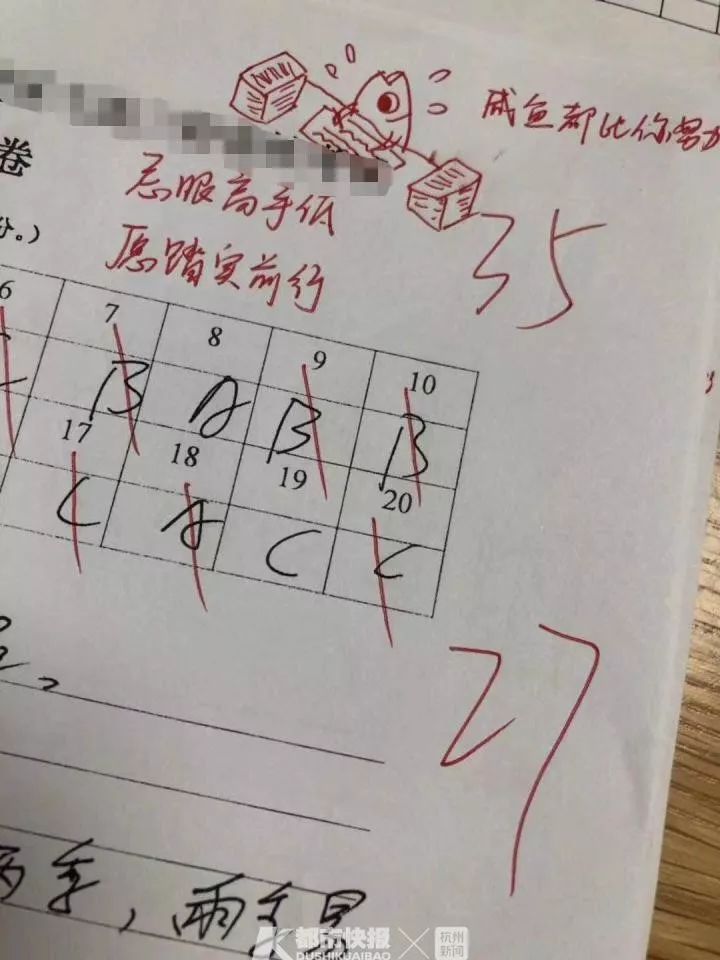 咸鱼都比你努力
卷
忌眼高手低
分。)
愿踏实前行
35
6 7 8 9 10
B A B B
17 18 19 20
C A C C
27
两季,两季是
都市快报 × 杭州新闻
DUSHIKUAIBAO